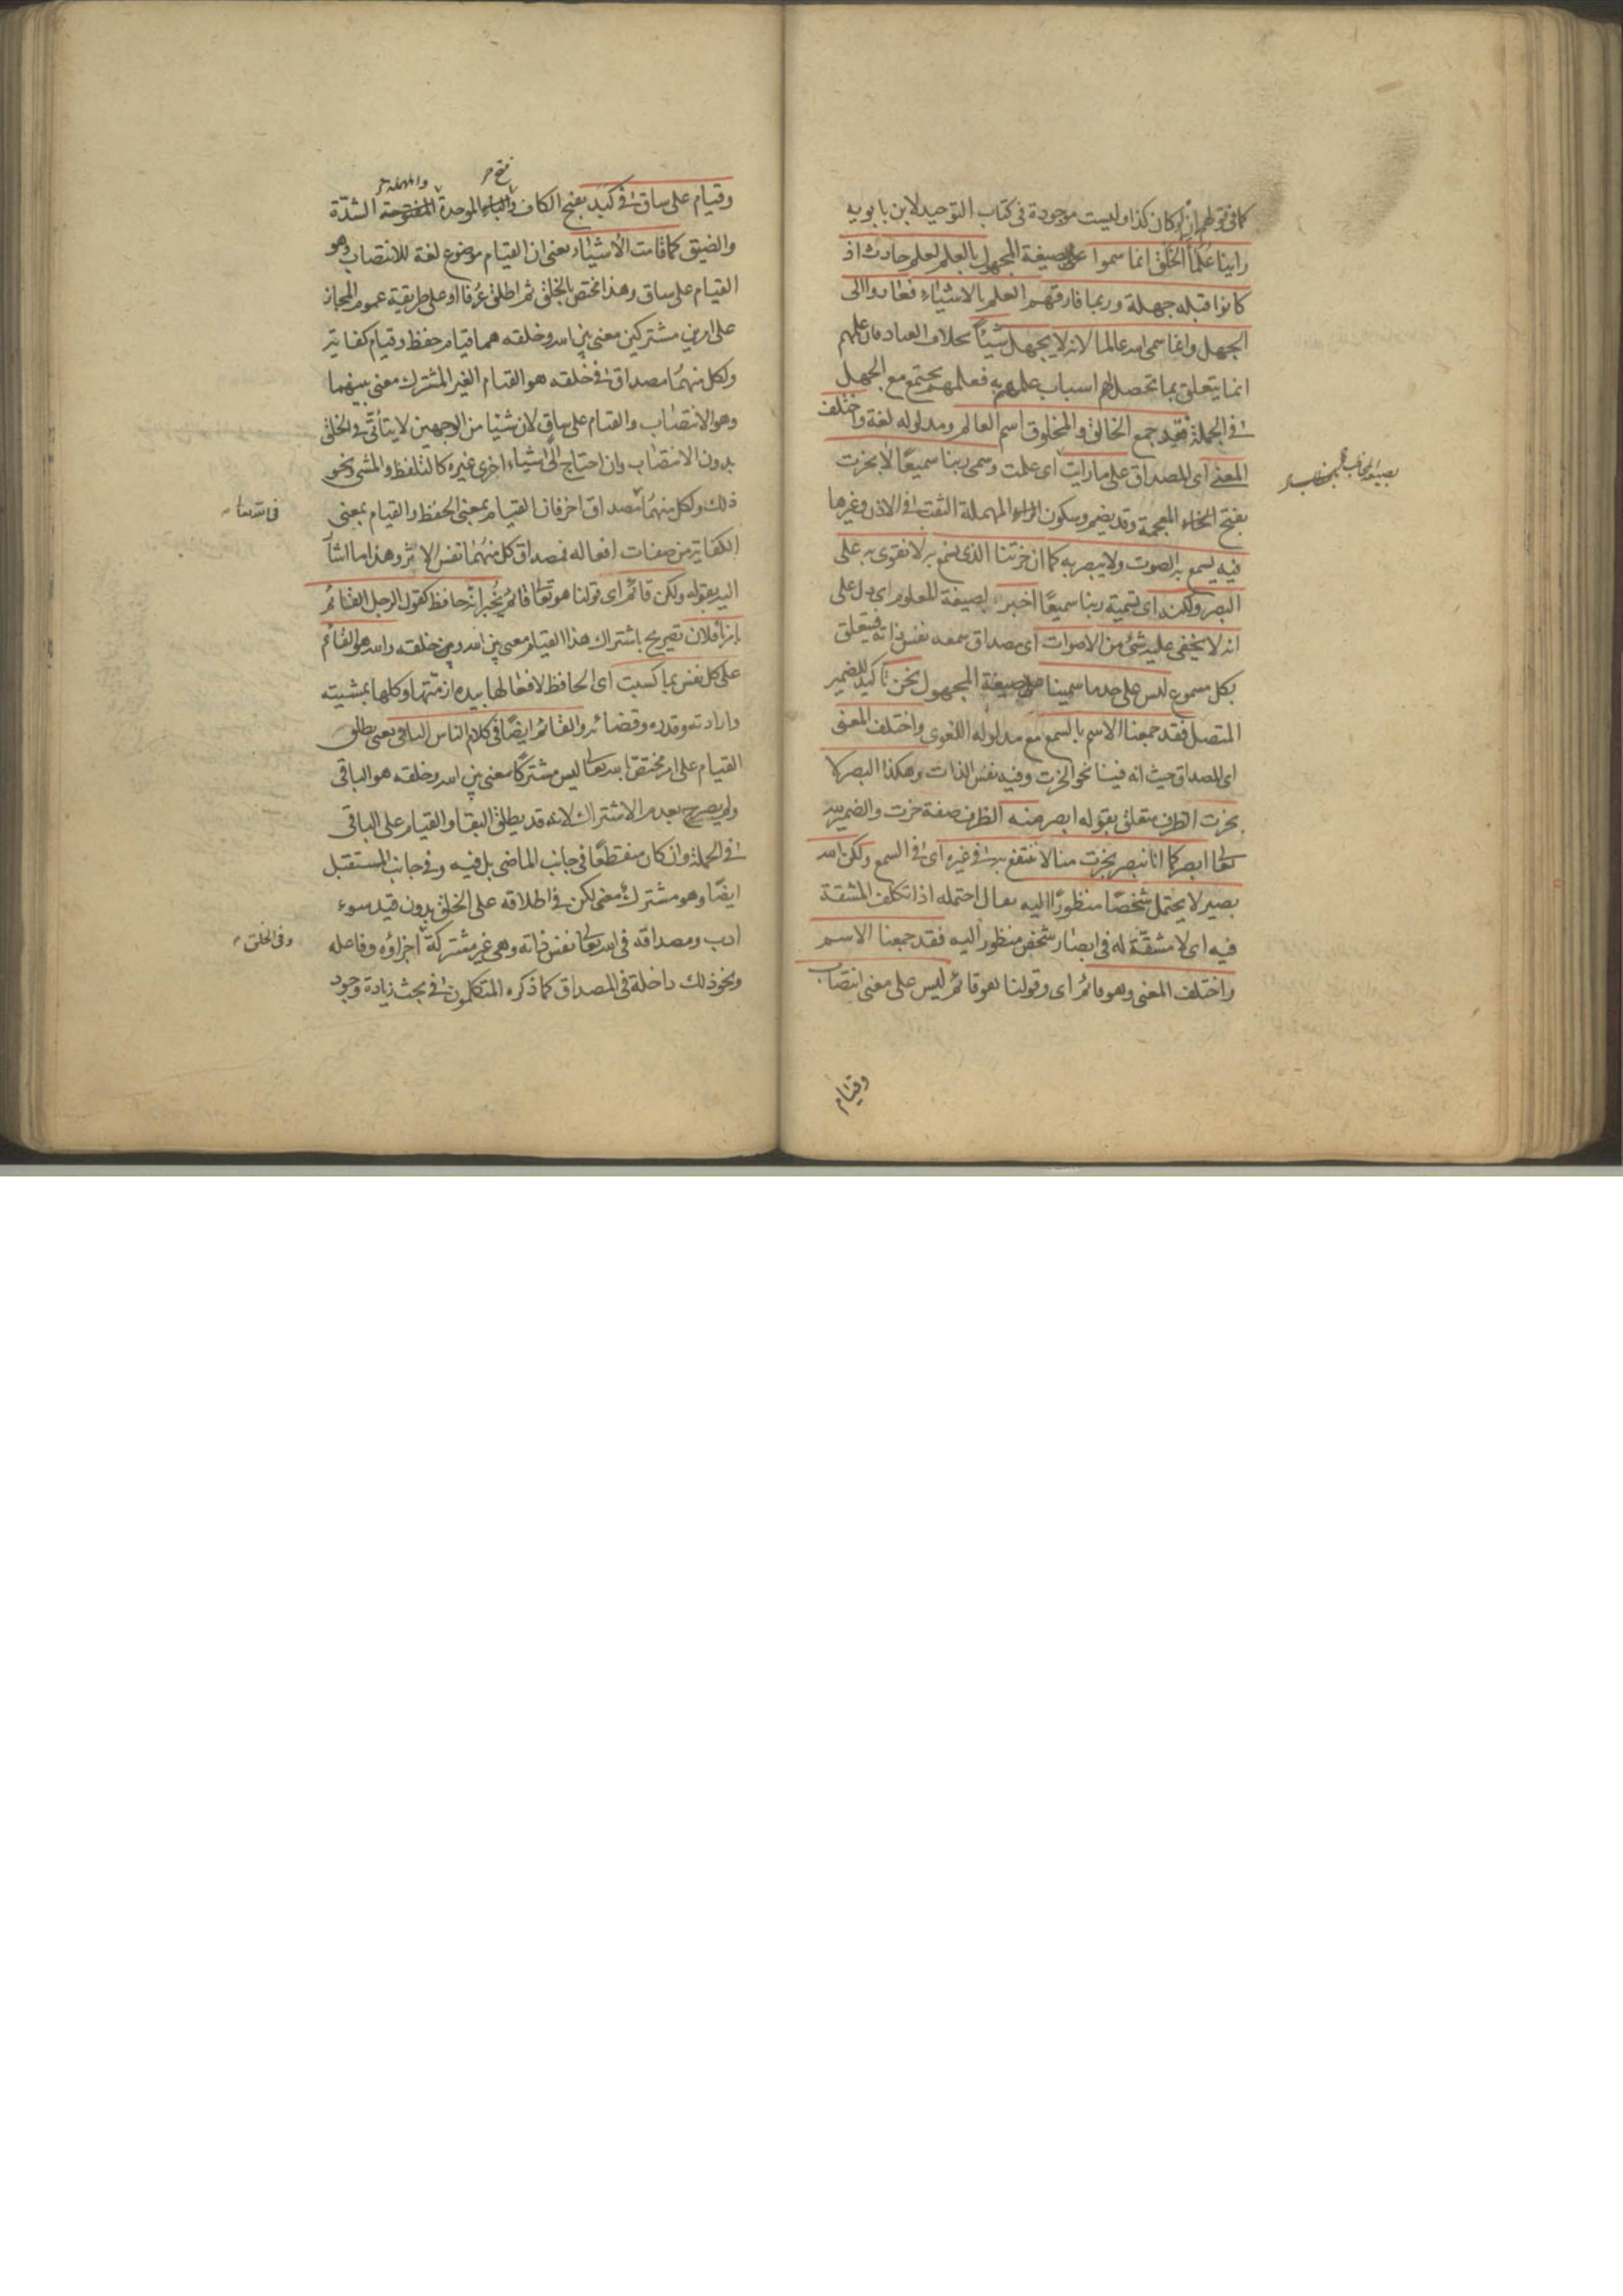 كما في قولهم ان لو كان كذا وليست موجودة في كتاب التوحيد لابن بابويه
راينا علماء الخلق انما سموا على صيغة المجهول بالعلم لعلم حادث اذ
كانوا قبله جهلة وربما فارقهم العلم بالاشياء فعادوا الى
الجهل وانما سمى الله عالما لانه لا يجهل شيئاً بخلاف العباد فان علمهم
انما يتعلق بما تحصل لهم اسباب علمهم به فعلمهم يجتمع مع الجهل
في الجملة فقد جمع الخالق والمخلوق اسم العالم ومدلوله لغة واختلف
المعنى اى المصداق على ما رايت اى علمت وسمى ربنا سميعًا لا بخرت
بصيغة الخطاب
بفتح الخاء المعجمة وقد يضم وسكون الراء المهملة الثقب في الاذن وغيرها
فيه يسمع به الصوت ولا يبصر به كما ان خرتنا الذى نسمع به لا نقوى به على
البصر ولكنه اى تسمية ربنا سميعًا اخبر بصيغة المعلوم اى دل على
انه لا يخفى عليه شئ من الاصوات اى مصداق سمعه نفس ذاته فيتعلق
بكل مسموع ليس على حد ما سمينا على صيغة المجهول نحن تاكيد للضمير
المتصل فقد جمعنا الاسم بالسمع مع مدلوله اللغوى واختلف المعنى
اى المصداق حيث انه فينا نحو الخرت وفيه نفس الذات وهكذا البصر لا
بخرت الظرف متعلق بقوله ابصر منه الظرف صفة خرت والضمير لله
تعالى ابصر كما انا نبصر بخرت منا لا ننتفع به في غيره اى في السمع ولكن الله
بصير لا يحتمل شخصًا منظورًا اليه يقال احتمله اذا تكلف المشقة
فيه اى لا مشقّة له في ابصار شخص منظور اليه فقد جمعنا الاسم
واختلف المعنى وهو قائم اى وقولنا هو قائم ليس على معنى انتصاب
وقيام
وقيام على ساق في كبد بفتح الكاف وفتح الباء الموحدة والمهملة المفتوحة الشدّة
والضيق كما قامت الاشياء يعنى ان القيام موضوع لغة للانتصاب وهو
القيام على ساق وهذا مختص بالخلق ثم اطلق عُرفا او على طريقة عموم المجاز
على امرين مشتركين معنى بين الله وخلقه هما قيام حفظ وقيام كفاية
ولكل منهما مصداق في خلقه هو القيام الغير المشترك معنى بينهما
وهو الانتصاب والقيام على ساق لان شيئا من الوجهين لا يتأتّى في الخلق
بدون الانتصاب وان احتاج الى اشياء اخرى غيره كالتلفظ والمشى ونحو
ذلك ولكل منهما مصداق اخر فان القيام بمعنى الحفظ والقيام بمعنى
في الله تعالى
الكفاية من صفات افعاله فمصداق كل منهما نفس الاثر وهذا ما اشار
اليه بقوله ولكن قائم اى قولنا هو تعالى قائم يُخبر انّه حافظ كقول الرجل القائم
بامرنا فلان تصريح باشتراك هذا القيام معنى بين الله وبين خلقه والله هو القائم
على كل نفس بما كسبت اى الحافظ لافعالها بيده ازمّتها وكلها بمشيته
وارادته وقدره وقضائه والقائم ايضًا في كلام الناس الباقى يعنى يطلق
القيام على امر مختص بالله تعالى ليس مشتركًا معنى بين الله وخلقه هو الباقى
ولم يصرح بعدم الاشتراك لانه قد يطلق البقاء والقيام على الباقى
في الجملة وان كان منقطعًا في جانب الماضى بل فيه وفي جانب المستقبل
ايضًا وهو مشترك معنى لكن في اطلاقه على الخلق بدون قيد سوء
ادب ومصداقه في الله تعالى نفس ذاته وهى غير مشتركة اجزاؤه وفاصله
وفى الخلق
ونحو ذلك داخلة في المصداق كما ذكره المتكلمون في بحث زيادة وجود